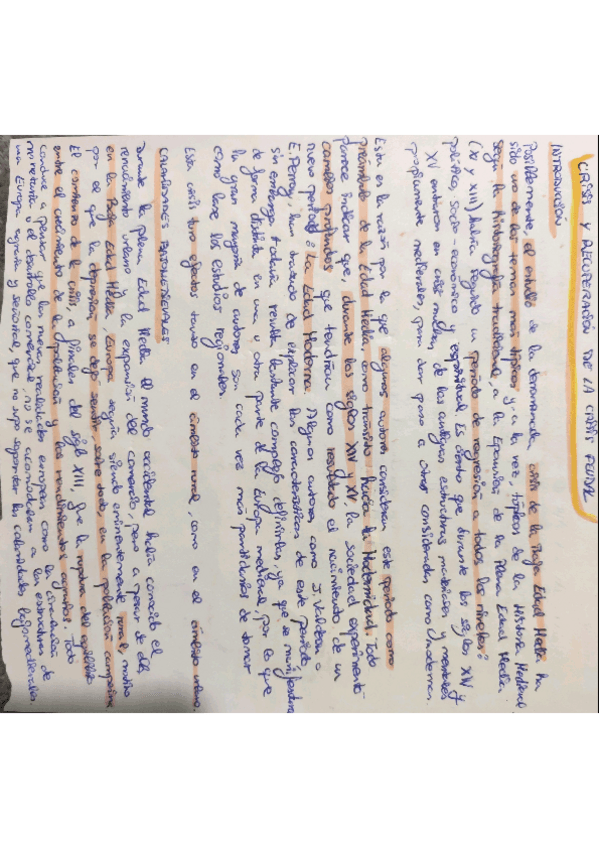 CRISIS Y RECUPERACIÓN DE LA CRISIS FEUDAL
INTRODUCCIÓN
Posiblemente, el estudio de la denominada crisis de la Baja Edad Media ha
sido uno de los temas más típicos y, a la vez, tópicos de la Historia Medieval
según la historiografía tradicional, a la Expansión de la Plena Edad Media
(XI y XIII) había seguido un periodo de regresión a todos los niveles:
político, socio-económico y espiritual. Es cierto que durante los siglos XIV y
XV entraron en crisis muchas de las antiguas estructuras materiales y mentales
propiamente medievales, para dar paso a otras consideradas como Modernas.
Esta es la razón por la que algunos autores consideran este periodo como
preámbulo de la Edad Media como tránsito hacia la Modernidad. Todo
parece indicar que, durante los siglos XIV y XV, la sociedad experimentó
cambios profundos que tendrían como resultado el nacimiento de un
nuevo periodo: La Edad Moderna. Algunos autores, como J. Valdeón o
E. Perroy, han tratado de explicar las características de este periodo,
sin embargo todavía resulta bastante complejo definirlas, ya que se manifestaron
de forma distinta en una y otra parte de la Europa medieval, por lo que
la gran mayoría de autores son cada vez más partidarios de tomar
como base los estudios regionales.
Esta crisis tuvo efectos tanto en el ámbito rural, como en el ámbito urbano.
CALAMIDADES BAJOMEDIEVALES
Durante la plena Edad Media el mundo occidental había conocido el
renacimiento urbano y la expansión del comercio, pero a pesar de ello,
en la Baja Edad Media, Europa seguía siendo eminentemente rural, motivo
por el que la depresión se dejó sentir sobre todo en la población campesina
El comienzo de la crisis, a finales del siglo XIII, fue la ruptura del equilibrio
entre el crecimiento de la población y los rendimientos agrarios. Todo
conduce a pensar que las nuevas realidades europeas como la
el desarrollo comercial, no se acomodaron a las estructuras de
una Europa agraria y señorial, que no supo soportar las calamidades bajomedievales.